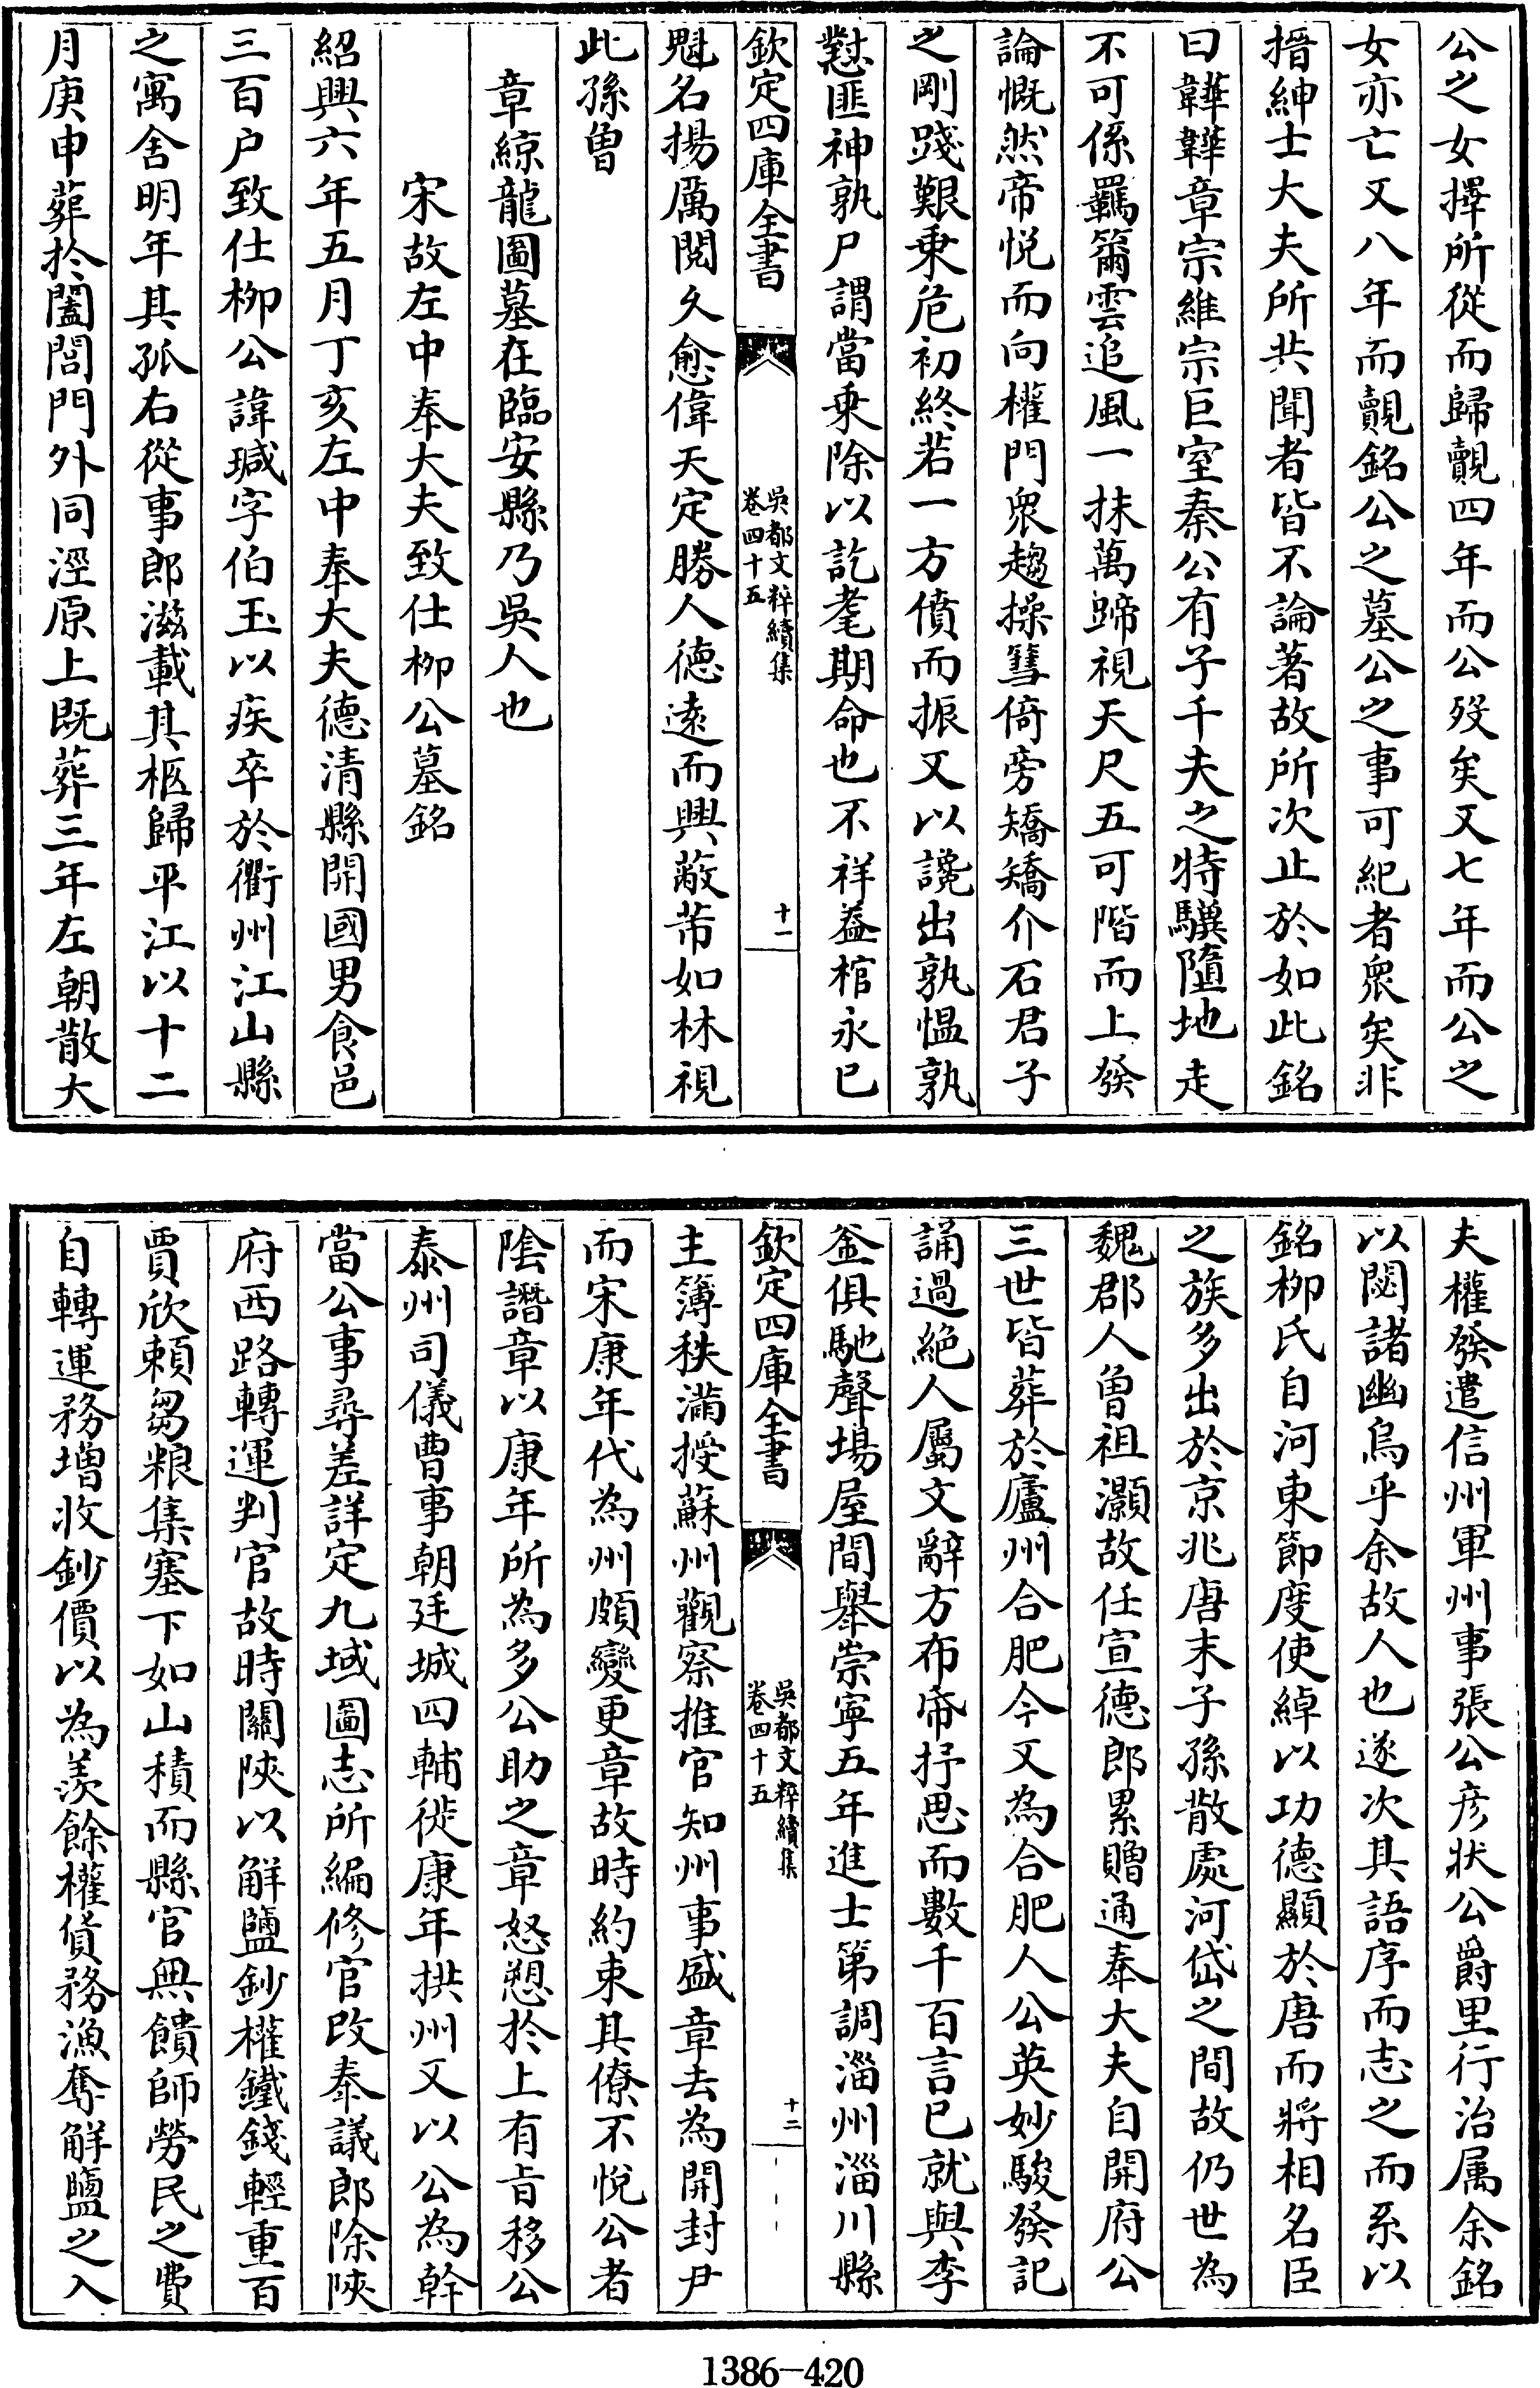 公之女擇所從而歸覿四年而公歿矣又七年而公之
女亦亡又八年而覿銘公之墓公之事可紀者衆矣非
搢紳士大夫所共聞者皆不論著故所次止於如此銘
曰韡韡章宗維宗巨室秦公有子千夫之特驥墮地走
不可係羈籋雲追風一抹萬蹄視天尺五可階而上發
論慨然帝悦而向權門衆趨操篲倚旁矯矯介石君子
之剛踐艱乘危初終若一方僨而振又以讒出孰愠孰
懟匪神孰尸謂當乘除以訖耄期命也不祥葢棺永已
欽定四庫全書
吳都文粹續集
卷四十五
十一
魁名揚厲閲久愈偉天定勝人德遠而興蔽芾如林視
此孫曾
章綡龍圖墓在臨安縣乃吳人也
宋故左中奉大夫致仕柳公墓銘
紹興六年五月丁亥左中奉大夫德清縣開國男食邑
三百户致仕柳公諱瑊字伯玉以疾卒於衢州江山縣
之寓舍明年其孤右從事郎滋載其柩歸平江以十二
月庚申葬於閶閭門外同涇原上既葬三年左朝散大
夫權發遣信州軍州事張公彦狀公爵里行治属余銘
以閟諸幽烏乎余故人也遂次其語序而志之而系以
銘柳氏自河東節度使綽以功德顯於唐而將相名臣
之族多出於京兆唐末子孫散處河岱之間故仍世為
魏郡人曾祖灝故任宣德郎累贈通奉大夫自開府公
三世皆葬於廬州合肥今又為合肥人公英妙駿發記
誦過絶人屬文辭方布帝抒思而數千百言已就與李
釜俱馳聲場屋間舉崇寧五年進士第調淄州淄川縣
欽定四庫全書
吳都文粹續集
卷四十五
十二
主簿秩滿授蘇州觀察推官知州事盛章去為開封尹
而宋康年代為州頗變更章故時約束其僚不悦公者
陰譖章以康年所為多公助之章怒愬於上有旨移公
泰州司儀曹事朝廷城四輔徙康年拱州又以公為幹
當公事尋差詳定九域圖志所編修官改奉議郎除陜
府西路轉運判官故時關陜以解鹽鈔權鐵錢輕重百
賈欣頼芻粮集塞下如山積而縣官無饋師勞民之費
自轉運務増收鈔價以為羨餘權貨務漁奪解鹽之入
1386-420